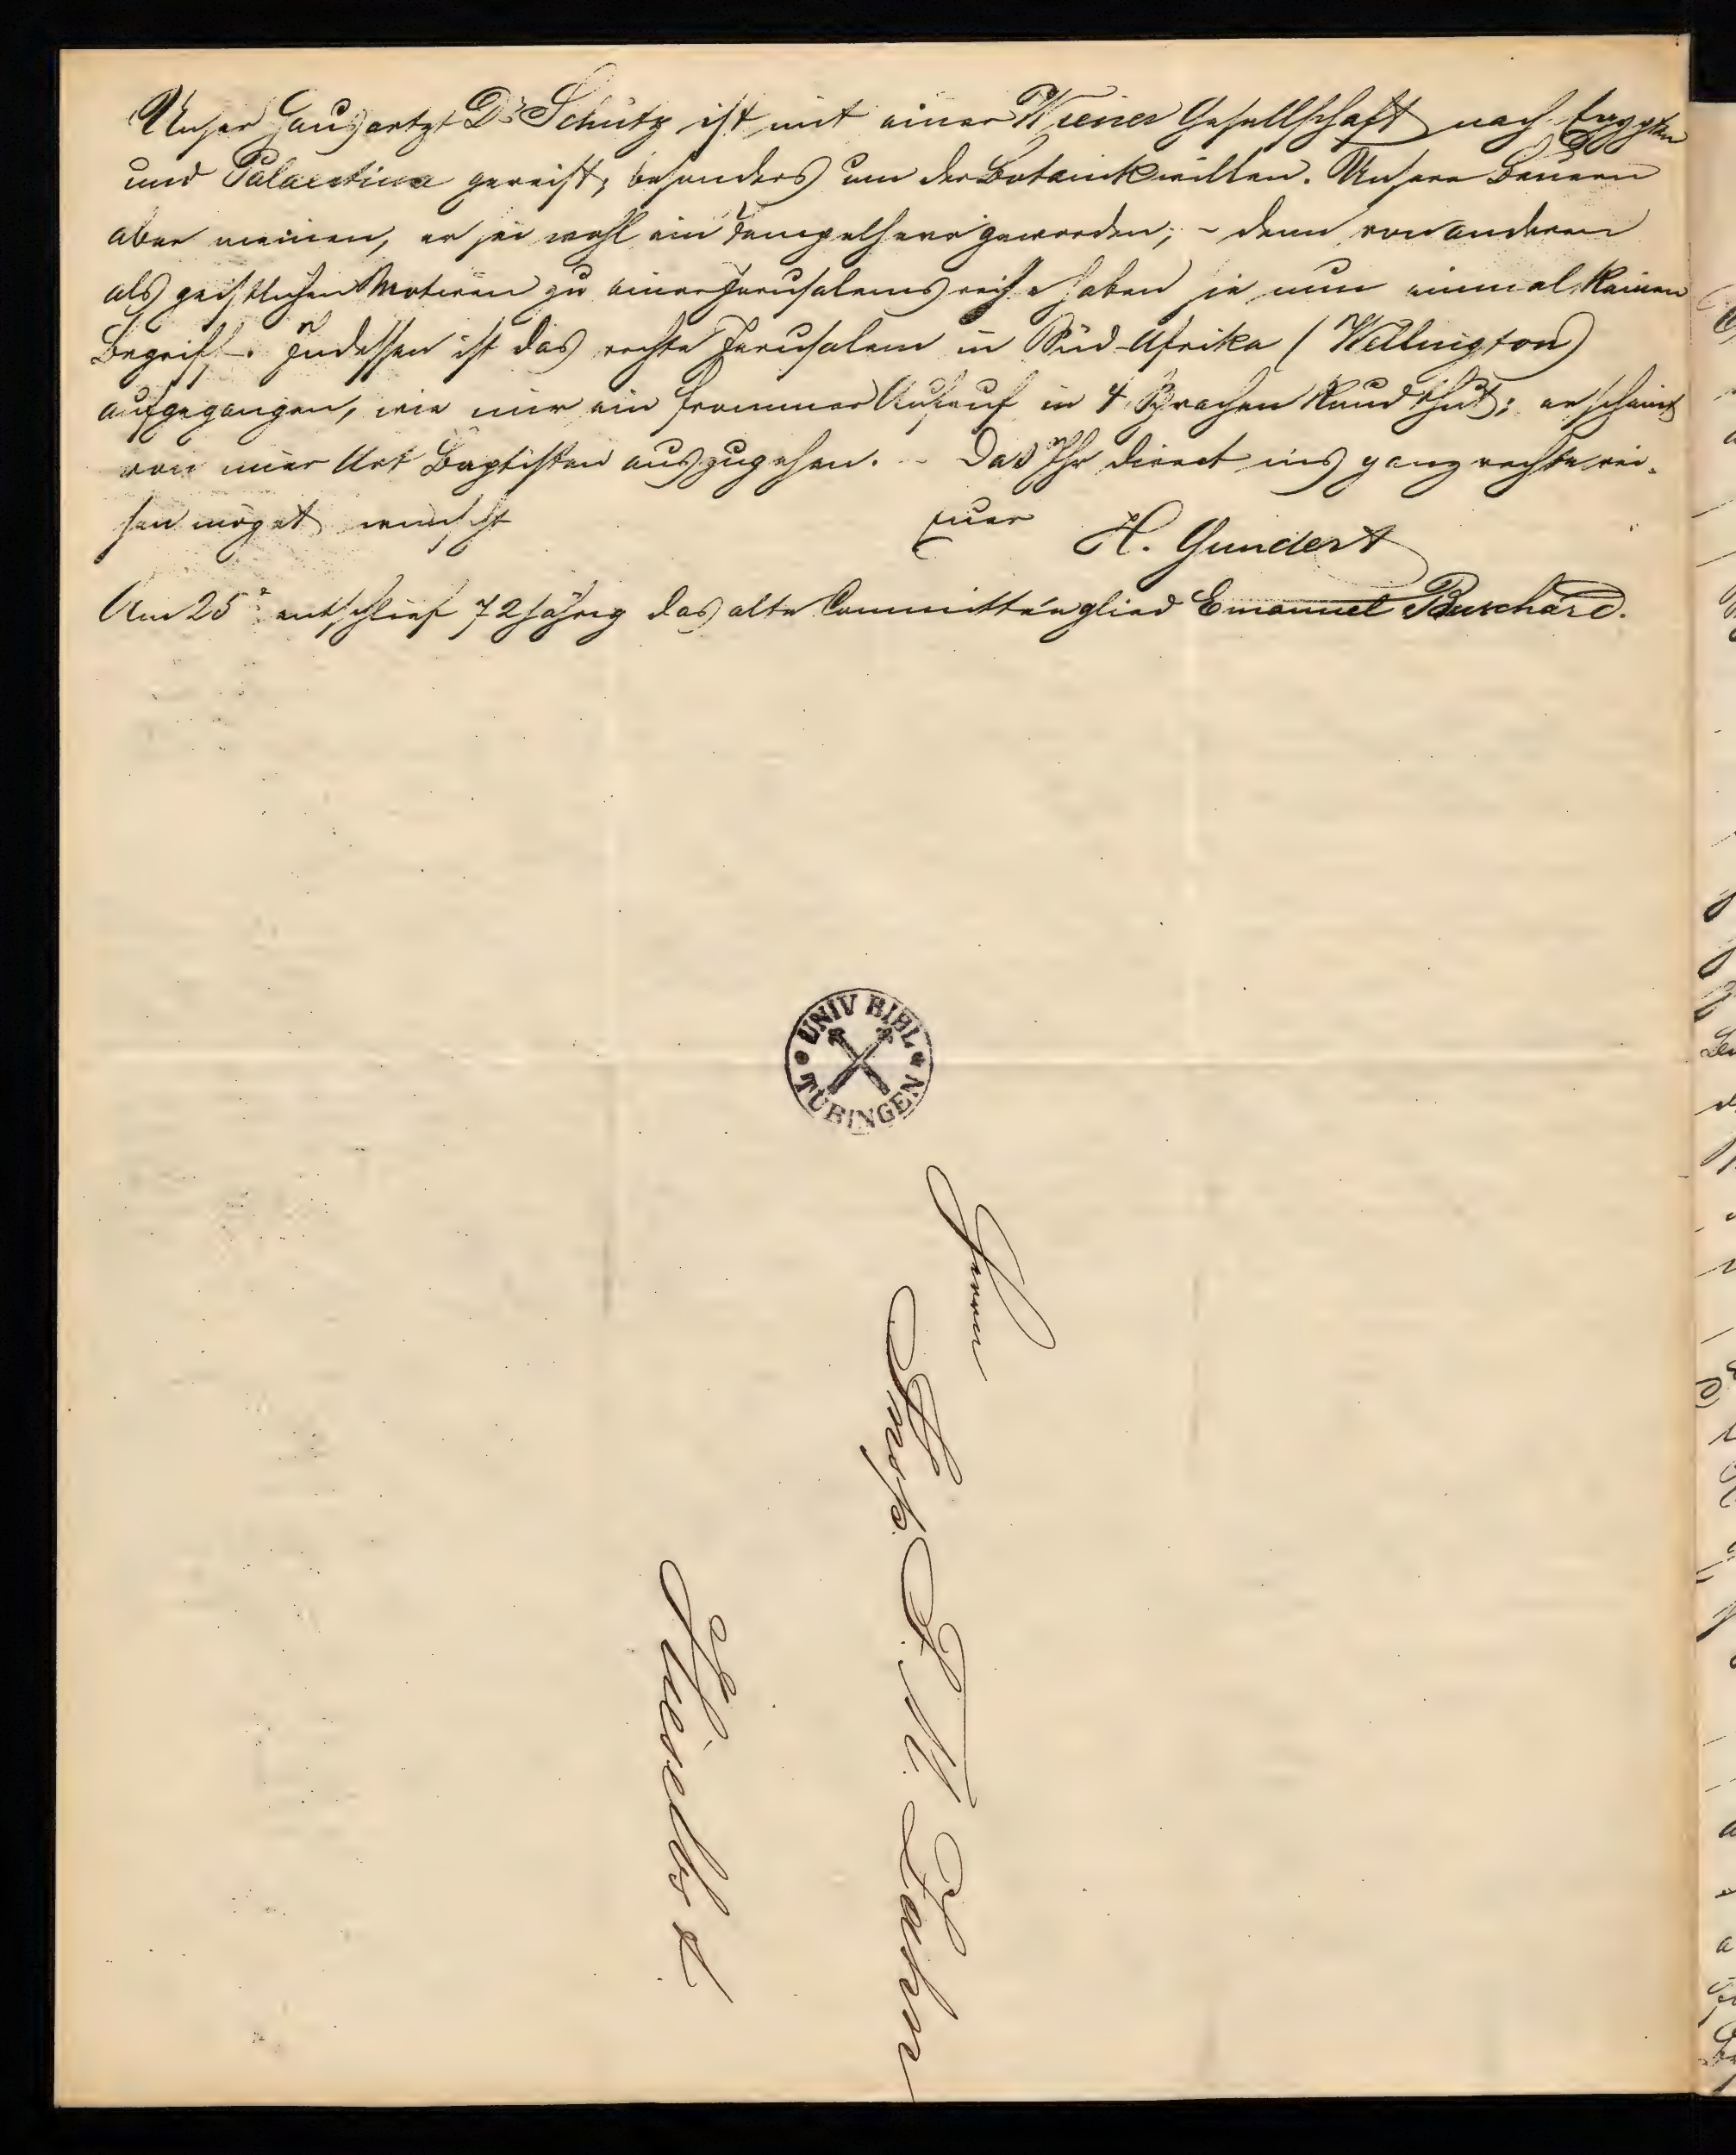 Unser Hausartzt Dr Schütz ist mit einer Wiener Gesellschaft nach Egypten
und Palaestina gereist, besonders um der Botanik willen. Unsere Bauern
aber meinen, er sei wohl ein Tempelherr geworden; - denn von anderen
als geistlichen Motiven zu einer Jerusalemsreise haben sie nun einmal keinen
Begriff. Indessen ist das rechte Jerusalem in Süd-Afrika (Wellington)
aufgegangen, wie mir ein frommer Aufruf in 4 Sprachen kund thut; er scheint
von einer Art Baptisten auszugehen. - Das Ihr direct ins ganz rechte rei-
sen möget wünscht Euer H. Gundert
Am 25 entschlief 72jährig das alte Committéeglied Emanuel Burchard.
UNIV BIBL
TÜBINGEN
Herrn
Insp. F. M. Zahn